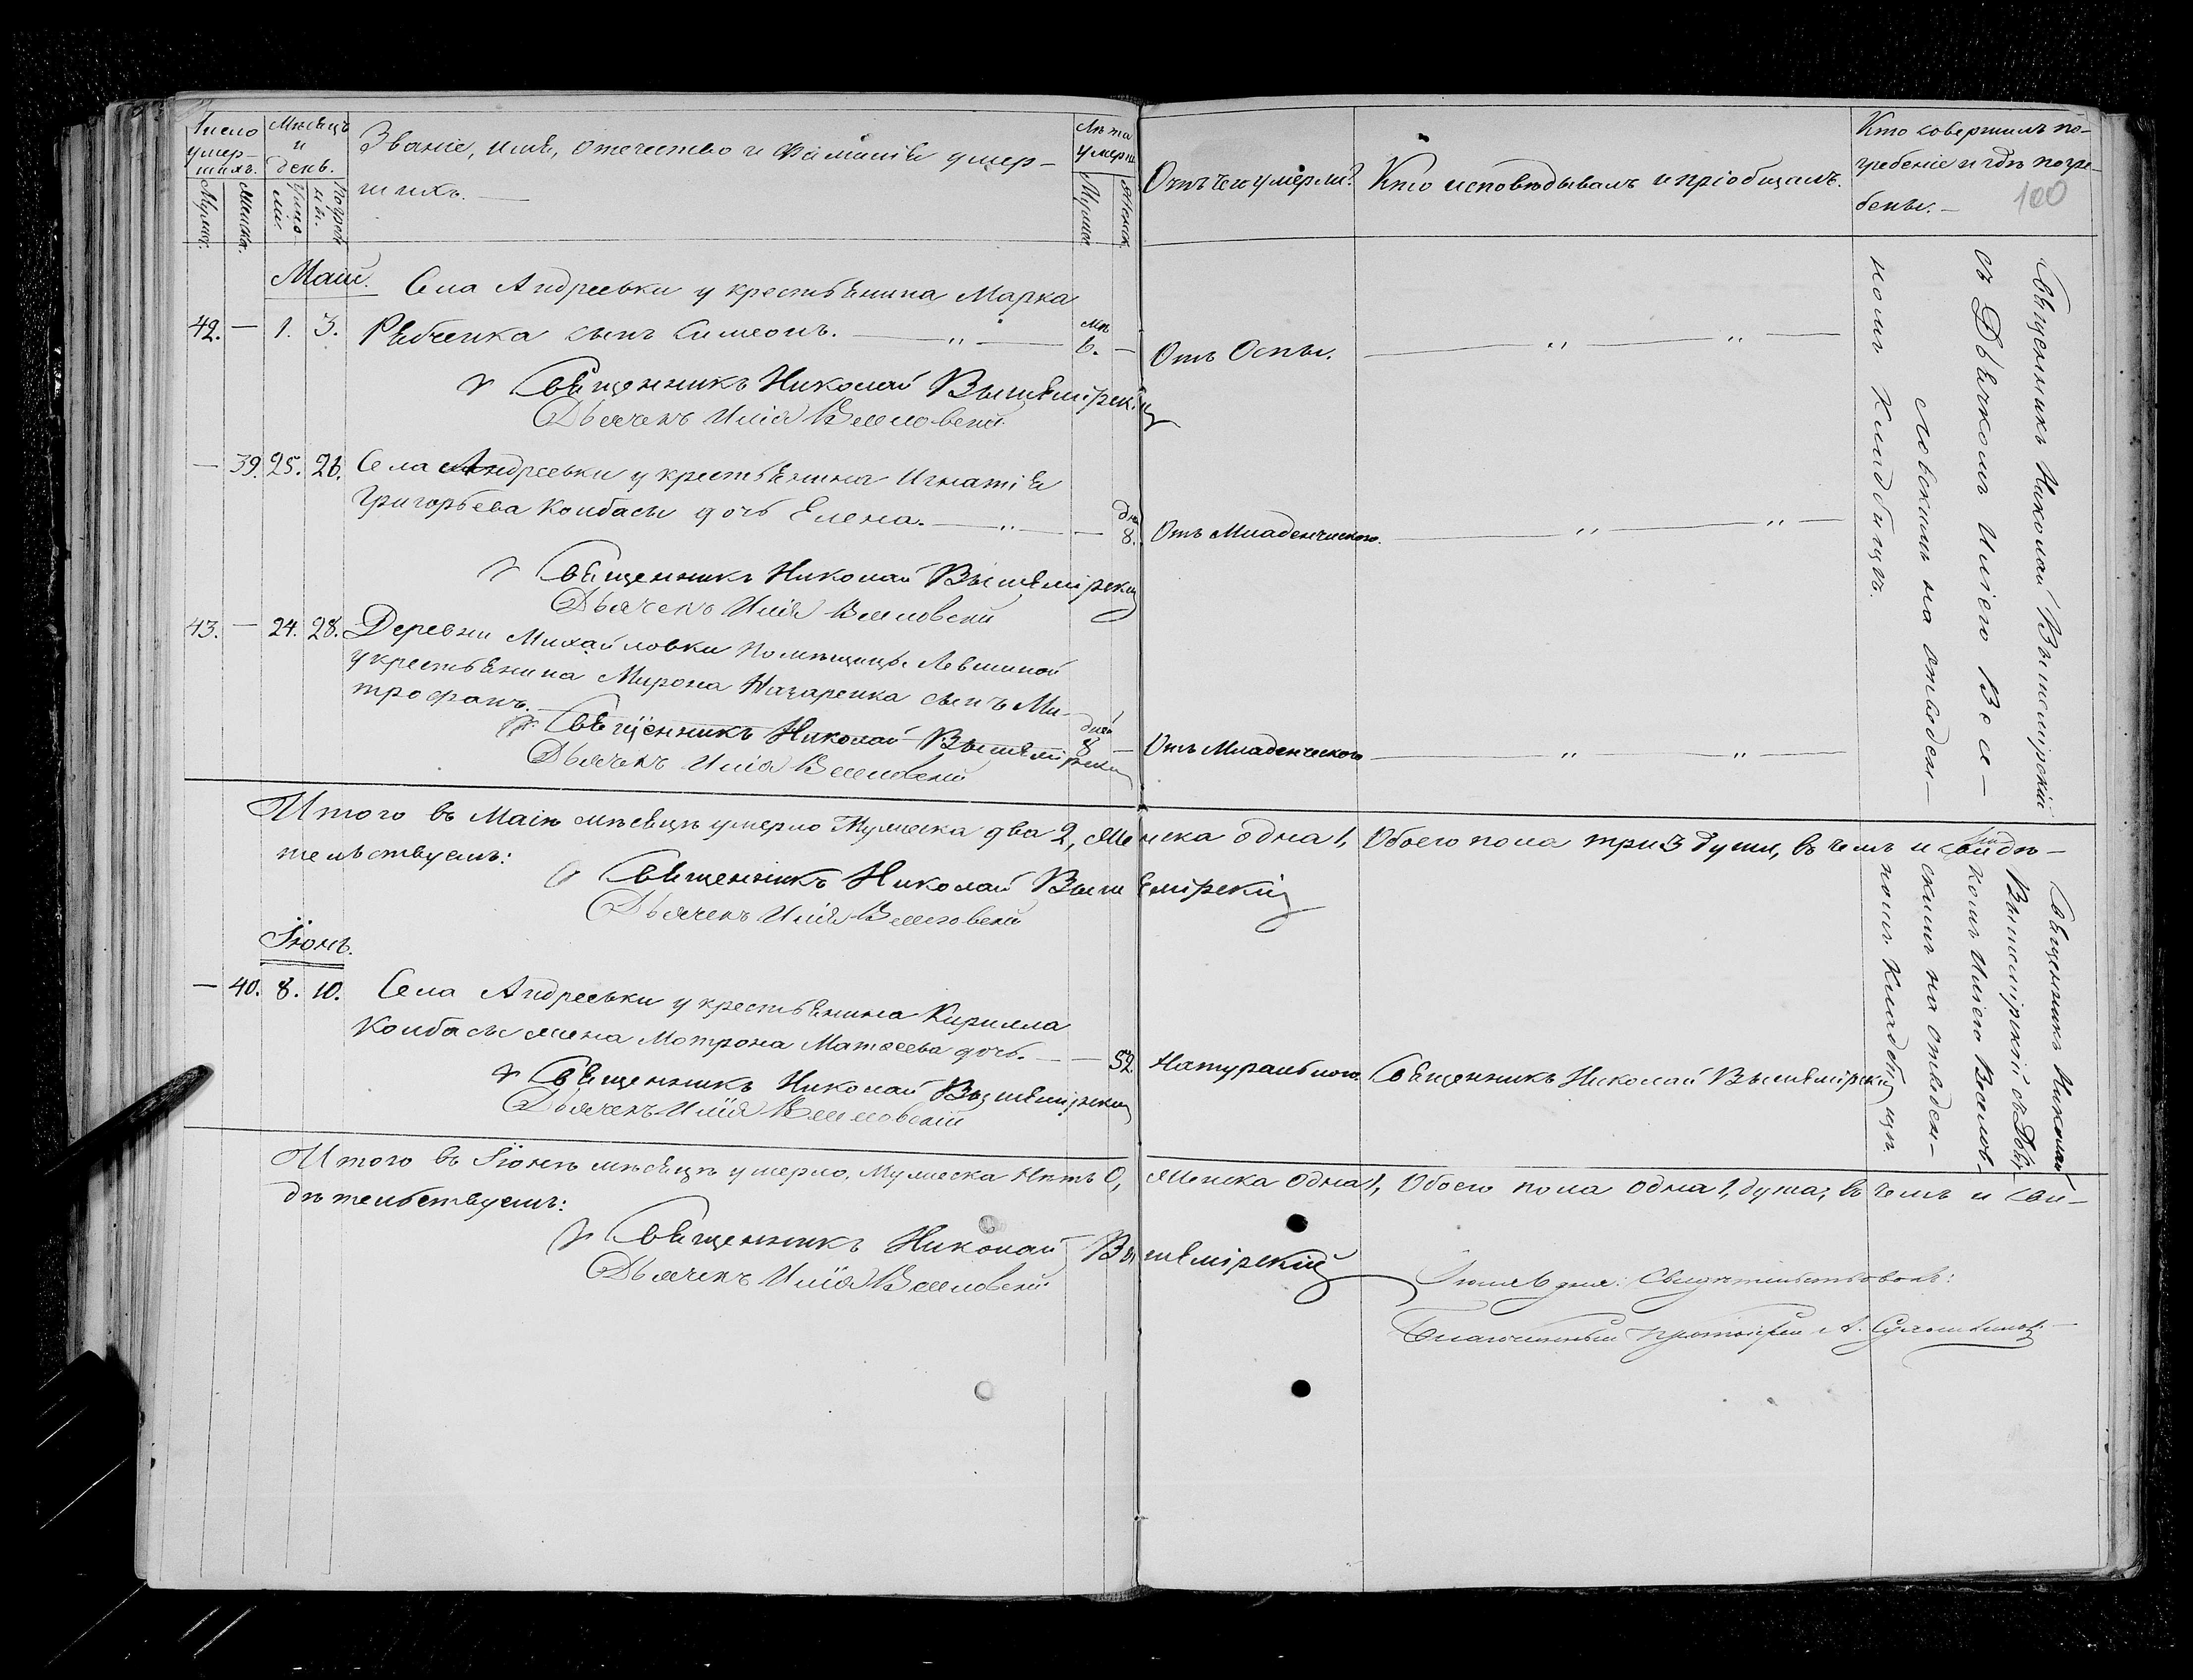 Число умер-
шихъ.
Мужес.
Женска.
Мѣсяцъ
и
день.
Умер-
ли.
Погреб
ны.
Званіе, имя, отечество и Фамилія умер-
шихъ. —
Лѣта
умерш.
Мужск.
Женск.
Отъ чего умерли?
Кто исповѣдывалъ и пріобщалъ.
Кто совершилъ по-
гребеніе и гдѣ погре-
бены. —
100
Май.
Села Андреевки у крестьянина Марка
42. — 1. 3. Рябченка сынъ Симеонъ. — „ — мѣ 6. — Отъ Оспы. — „ — „ —
Священникъ Николай Вышемірскій
Дьячекъ Илія Веселовскій
— 39. 25. 26. Села Андреевки у крестьянина Игнатія
Григорьева Колбасы дочь Елена. — „ — — дня 8. Отъ Младенческого. — „ — „ —
Священникъ Николай Вышемірскій
Дьячекъ Илія Веселовскій
43. — 24. 28. Деревни Михайловки Помѣщицы Левшиной
у крестьянина Мирона Назаренка сынъ Ми-
трофанъ. — дней 8 — Отъ Младенческого — „ — „ —
Священникъ Николай Вышемірскій
Дьячекъ Илія Веселовскій
Священникъ Николай Вышемірскій
съ Дьячкомъ Иліею Весе-
ловскимъ на отведен-
номъ Кладбищѣ.
Итого въ Маіѣ мѣсяцѣ умерло Мужеска два 2, Женска одна 1, Обоего пола три 3 души, въ чемъ и свидѣ-
тельствуемъ:
Священникъ Николай Вышемірскій
Дьячекъ Илія Веселовскій
Іюнь.
— 40. 8. 10. Села Андреевки у крестьянина Кирилла
Колбасы жена Мотрона Матѳеева дочь. — — 52 Натурального. Священникъ Николай Вышемірскій
Священникъ Николай Вышемірскій
Дьячекъ Илія Веселовскій
Священникъ Николай
Вышемірскій съ Дьяч-
комъ Иліею Веселов-
скимъ на отведен-
номъ Кладбищѣ.
Итого въ Іюнѣ мѣсяцѣ умерло, Мужеска Нѣтъ 0, Женска Одна 1, Обоего пола Одна 1, душа; въ чемъ и сви-
дѣтельствуемъ:
Священникъ Николай Вышемірскій
Дьячекъ Илія Веселовскій
Іюля 6 дня: Свидѣтельствовалъ:
Благочинный Протоіерей А.